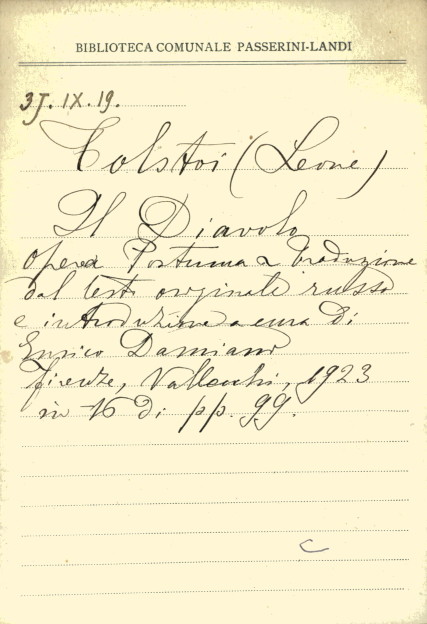 BIBLIOTECA COMUNALE PASSERINI-LANDI
3J.IX.19.
Tolstoi (Leone)
Il Diavolo
opera Postuma Traduzione
dal testo originale russo
e introduzione a cura di
Enrico Damiani
Firenze, Vallecchi, 1923
in 16 di pp. 99.
C